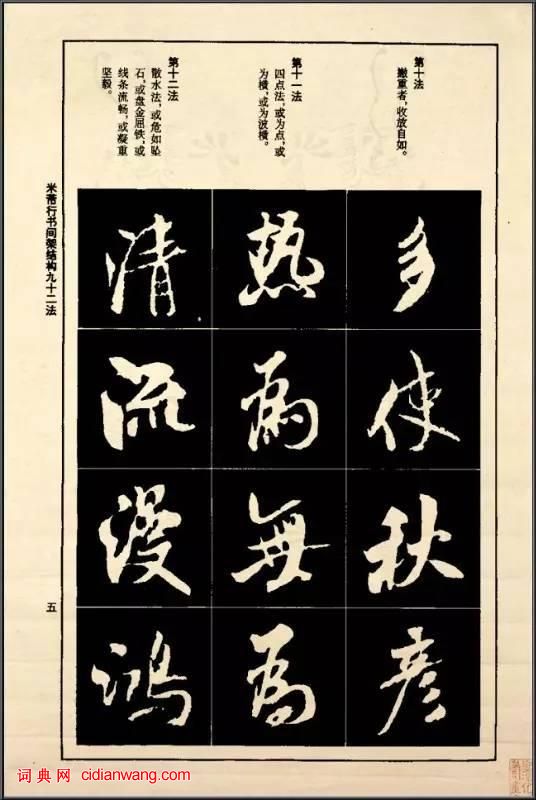 第十法
撇重者，收放自如。
多
使
秋
彦
第十一法
四点法，或为点，或
为横，或为波横。
热
為
無
為
第十二法
散水法，或危如坠
石，或盘金屈铁，或
线条流畅，或凝重
坚毅。
清
流
漫
鸿
米芾行书间架结构九十二法
五
词典网 cidianwang.com